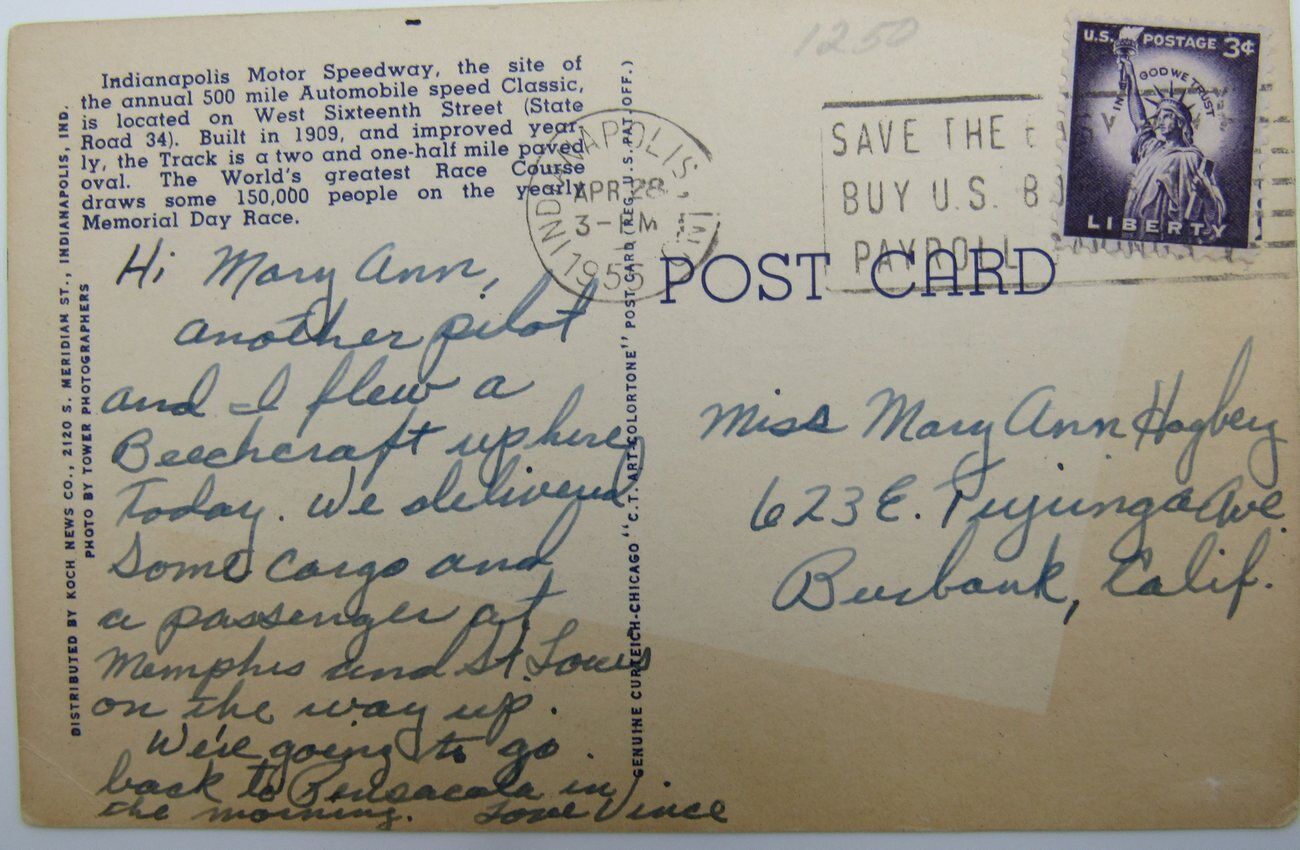 1250
Indianapolis Motor Speedway, the site of
the annual 500 mile Automobile speed Classic,
is located on West Sixteenth Street (State
Road 34). Built in 1909, and improved year-
ly, the Track is a two and one-half mile paved
oval. The World's greatest Race Course
draws some 150,000 people on the yearly
Memorial Day Race.
Hi Mary Ann,
another pilot
and I flew a
Beechcraft up here
today. We delivered
some cargo and
a passenger at
Memphis and St. Louis
on the way up.
We're going to go
back to Pensacola in
the morning. Love Vince
DISTRIBUTED BY KOCH NEWS CO., 2120 S. MERIDIAN ST., INDIANAPOLIS, IND.
PHOTO BY TOWER PHOTOGRAPHERS
GENUINE CURTEICH-CHICAGO "C.T. ART-COLORTONE" POST CARD (REG. U.S. PAT. OFF.)
INDIANAPOLIS,
APR 28
3-PM
1955
SAVE THE
BUY U.S.
PAYROLL
U.S. POSTAGE 3¢
IN GOD WE TRUST
LIBERTY
POST CARD
Miss Mary Ann Hagberg
623 E. Tujunga Ave.
Burbank, Calif.